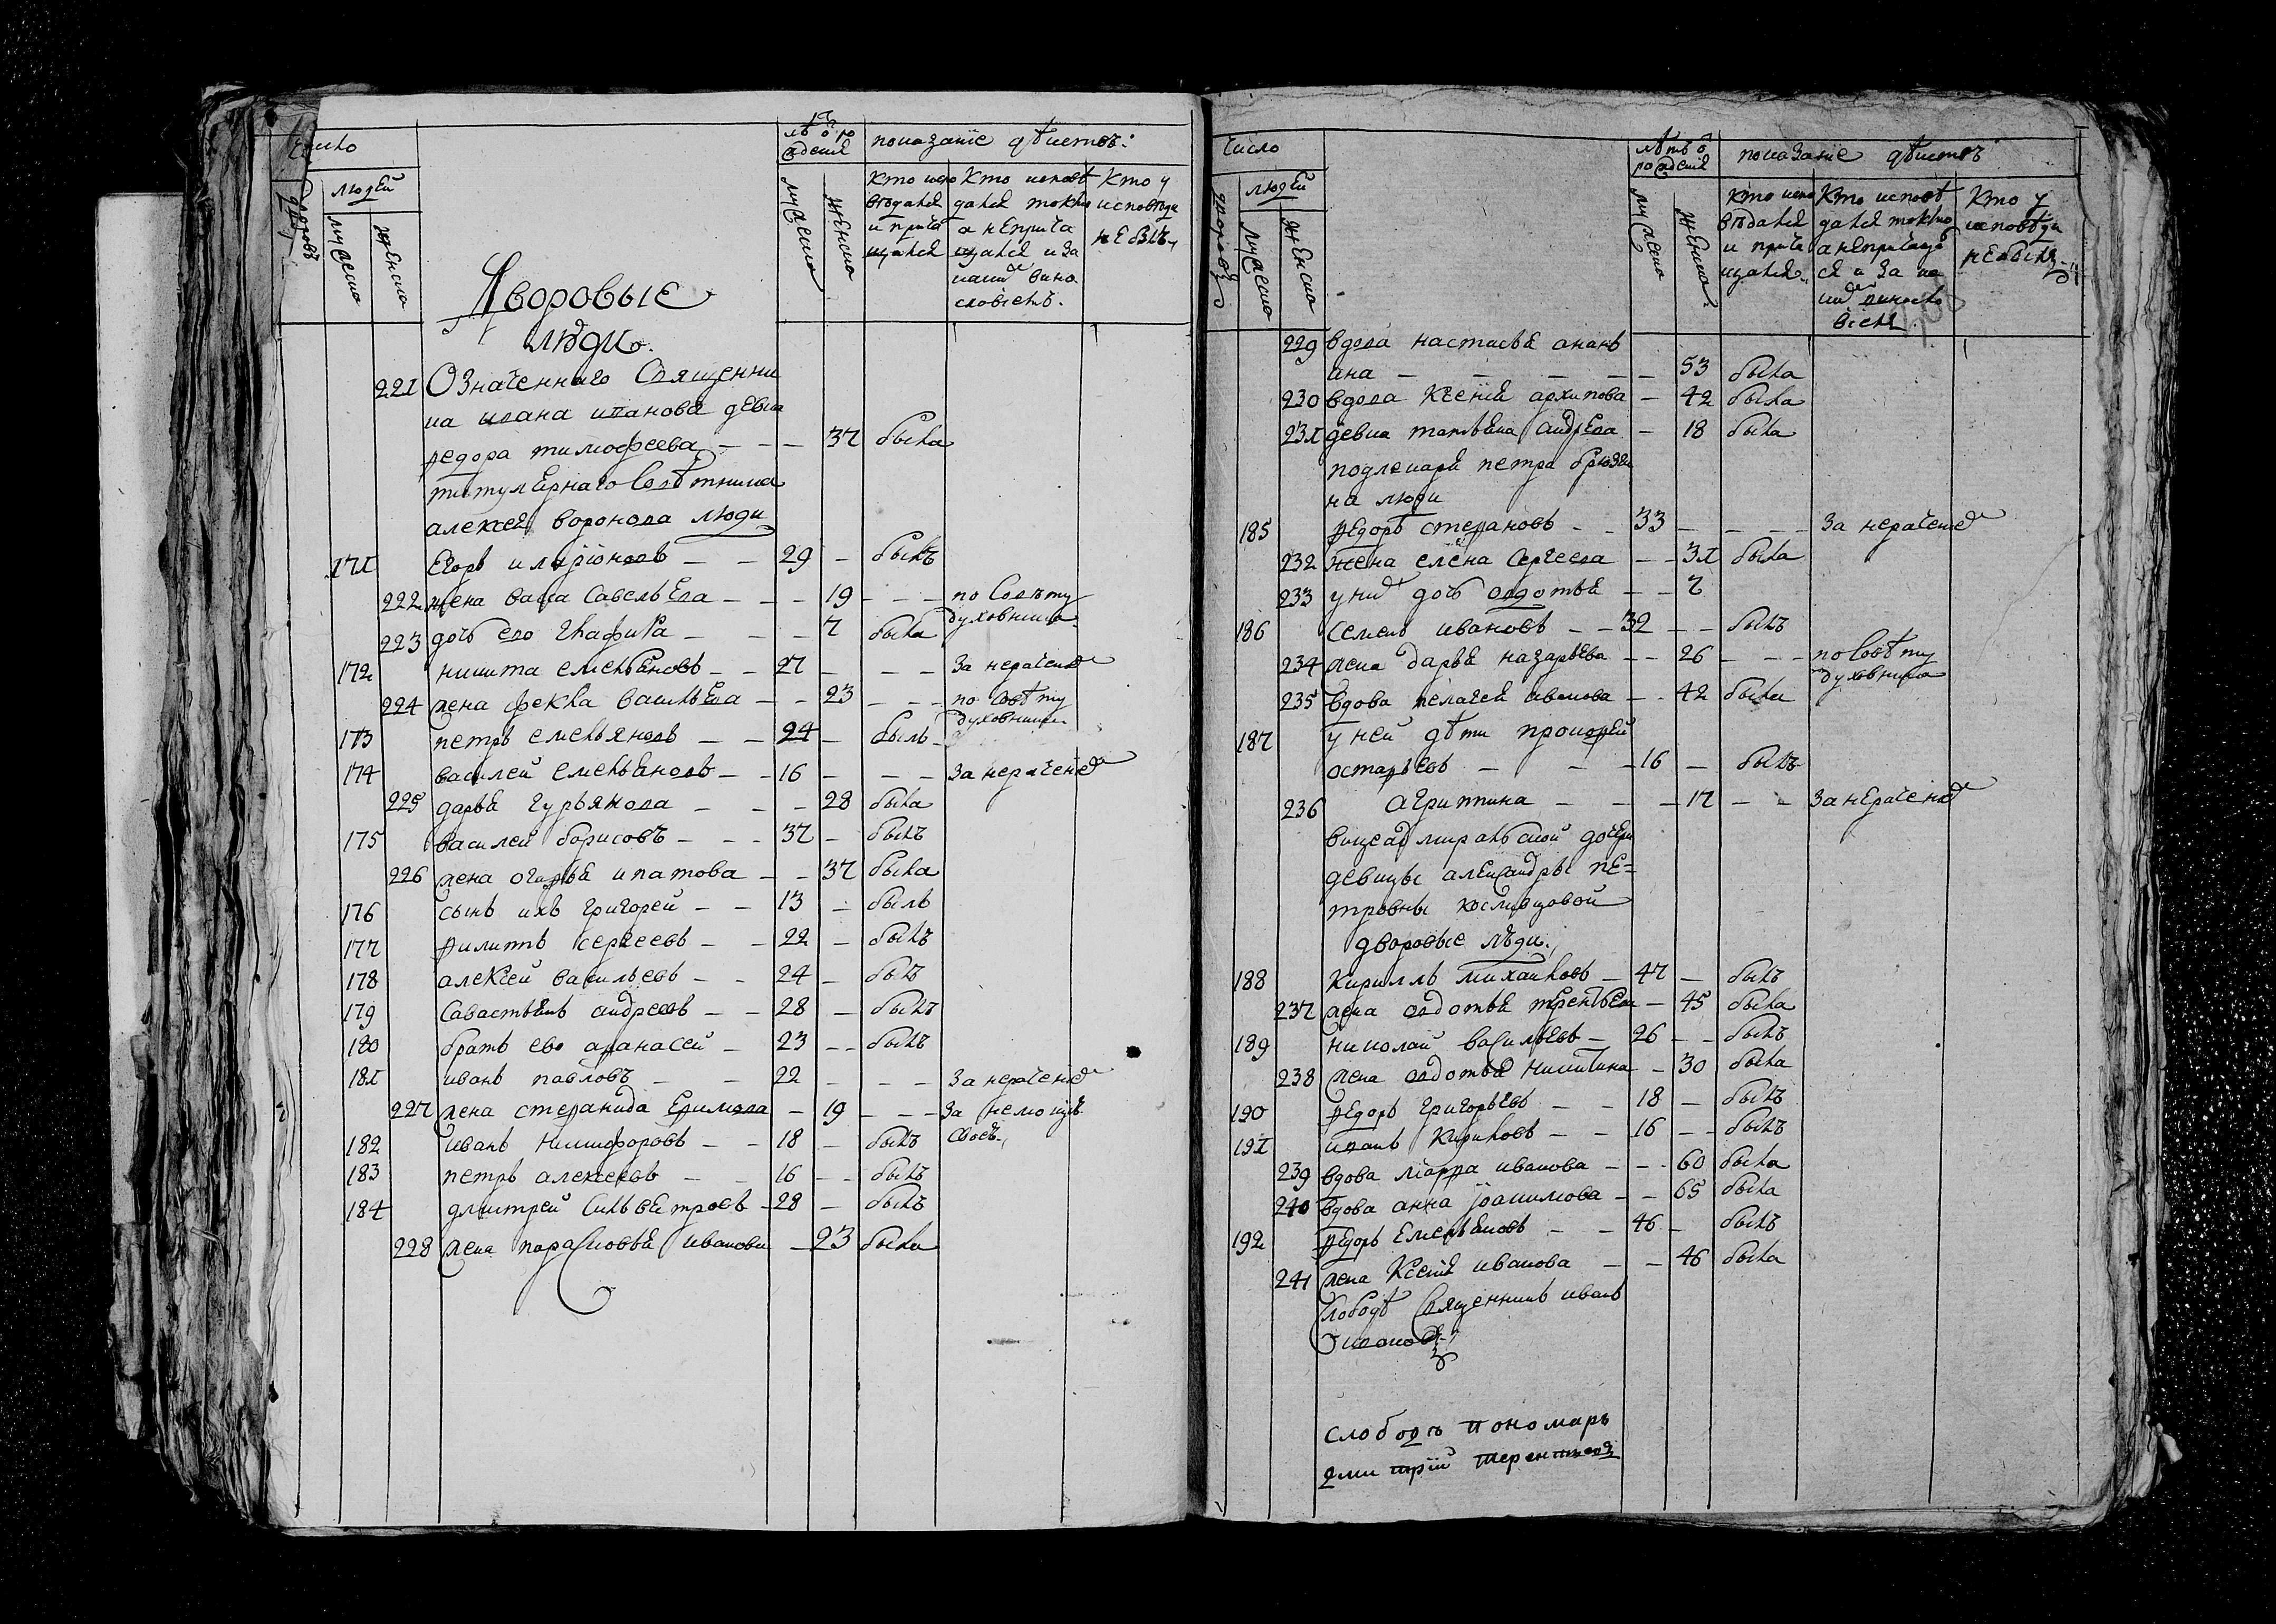 Число
людей
дворовъ
мужеска
женска
лѣтъ ѿ ро
жденія
мужеска
женска
показаніе дѣиствъ:
Кто испо
вѣдался
и прича
щался
Кто исповѣ
дался токмо
а неприча
щался и за
каким вино
словіемъ.
Кто у
исповѣди
небылъ
Дворовые
люди
221 Означеннаго Священни
ка ивана иванова девка
ѳедора тимофеева — — — 37 была
титулярнаго Совѣтника
алексея воронова люди
171 Егоръ иларіоновъ — — 29 — былъ
222 жена васса Савельева — — — 19 — — — по Совѣту
духовника
223 дочь ево Глафира — — — 7 была
172 никита емельяновъ — — 27 — — — За нераченіемъ
224 жена фекла васильева — — 23 — — — по Совѣту
духовника
173 петръ емельяновъ — — 24 — былъ
174 василей емельяновъ — — 16 — — — За нераченіемъ
225 дарья гурьянова — — — 28 была
175 василей борисовъ — — — 37 — былъ
226 жена огафья ипатова — — 37 была
176 сынъ ихъ григорей — — 13 — былъ
177 филиппъ сергеевъ — — 22 — былъ
178 алексей васильевъ — — 24 — былъ
179 Савастьянъ андреевъ — — 28 — былъ
180 братъ ево афанасей — 23 — — былъ
181 иванъ павловъ — — 22 — — — За нераченіемъ
227 жена стефанида Ефимова — 19 — — — За немощію
182 иванъ никифоровъ — — 18 — былъ своею
183 петръ алексеевъ — — 16 — — былъ
184 дмитрей Сильвестровъ — 28 — былъ
228 жена парасковья иванова — 23 была
Число
людей
дворовъ
мужеска
женска
лѣтъ ѿ
рожденія
мужеска
женска
показаніе дѣиствъ
Кто испо
вѣдался
и прича
щался
Кто исповѣ
дался токмо
а непричащал
ся и за ка
ким виносло
віемъ
Кто у
исповѣди
небылъ
229 вдова настасья анань
ина — — — — — 53 была
230 вдова Ксенія архипова — 42 была
231 девка татьяна андреева — 18 была
подлекаря петра
на люди
185 ѳедоръ стефановъ — — 33 — — — За нераченіемъ
232 жена елена Сергеева — — 31 была
233 у них дочь авдотья — — 7
186 Семенъ ивановъ — — 32 — — былъ
234 жена дарья назарьева — — 26 — — — по Совѣту
духовника
235 вдова пелагея иванова — — 42 была
187 у ней дѣти прокофей
остафьевъ — — — 16 — былъ
236 агрипина — — — 17 — — За нераченіемъ
вицеадмиральской дочери
девицы александры пе=
тровны косливцовой
дворовые люди
188 Кирилъ михаиловъ — 47 — былъ
237 жена авдотья терентьева — 45 была
189 николай васильевъ — 26 — — былъ
238 жена авдотья никитина — 30 была
190 ѳедоръ григорьевъ — — 18 — былъ
191 иванъ Кириловъ — — 16 — — былъ
239 вдова марфа иванова — — — 60 была
240 вдова анна іоакимова — — 65 была
192 ѳедоръ Емельяновъ — — 46 — былъ
241 жена Ксенія иванова — — 46 была
Слободъ Священникъ иванъ
ивановъ
слободъ пономарь
дмитрій терентьевъ